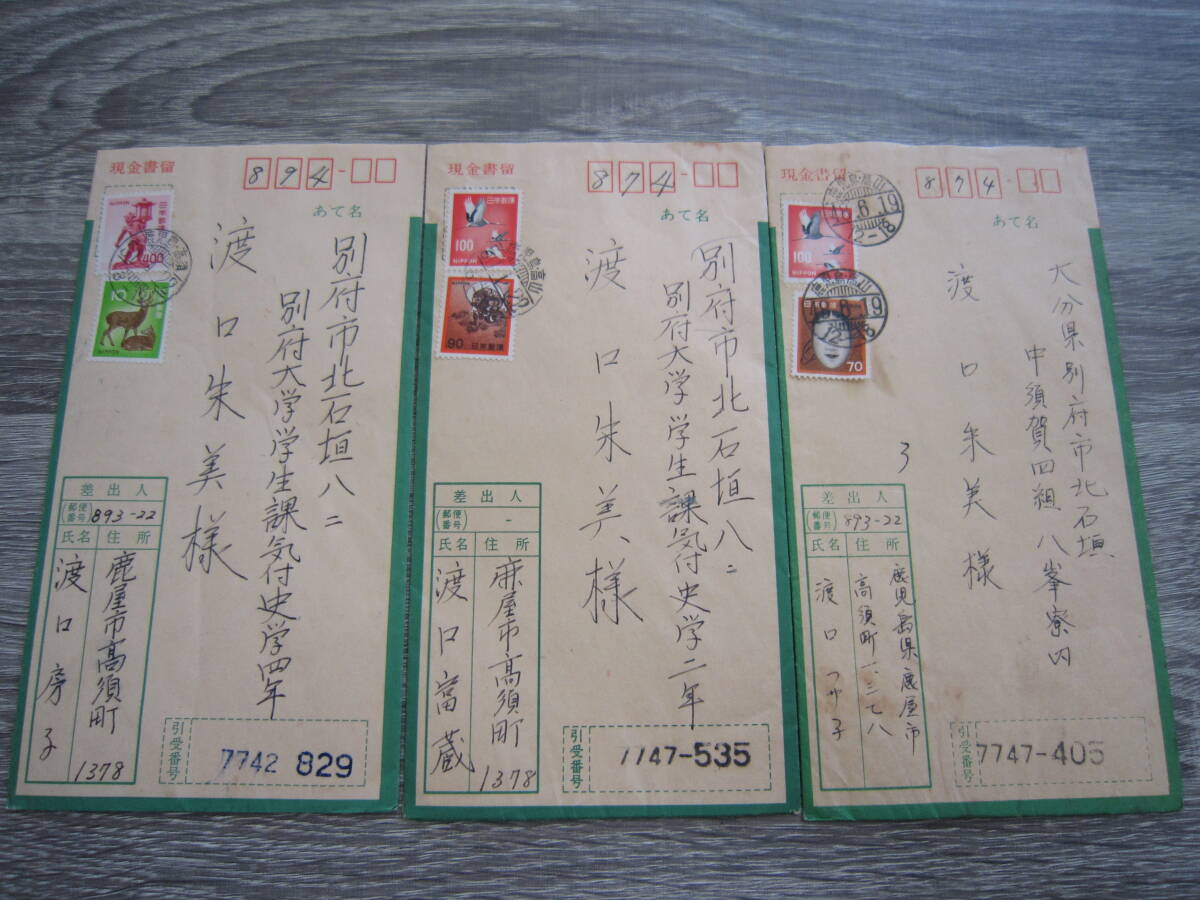 現金書留
894-
あて名
NIPPON
日本郵便
400
10
NIPPON
別府市北石垣八二
別府大学学生課気付史学四年
渡口朱美様
差出人
(郵便番号)893-22
氏名 住所
鹿屋市高須町
1378
渡口房子
引受番号
7742 829
現金書留
874-
あて名
日本郵便
100
NIPPON
90 日本郵便
別府市北石垣八二
別府大学学生課気付史学二年
渡口朱美様
差出人
(郵便番号) -
氏名 住所
鹿屋市高須町
1378
渡口富蔵
引受番号
7747-535
現金書留
874-
あて名
日本郵便
100
NIPPON
日本郵便
70
6.19
12-18
大分県別府市北石垣
中須賀四組 八峯寮内
渡口朱美様
差出人
(郵便番号)893-22
氏名 住所
鹿児島県鹿屋市
高須町一三七八
渡口
引受番号
7747-405